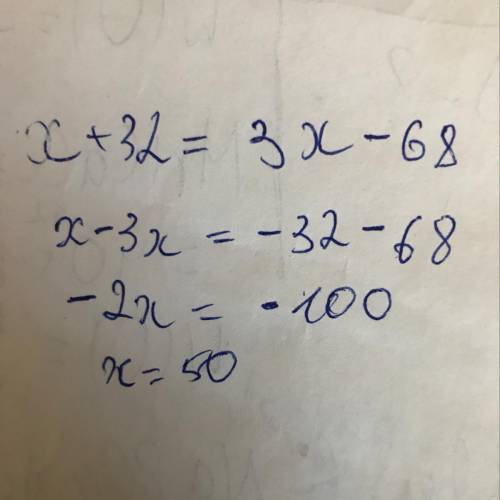 x + 32 = 3x - 68
x - 3x = -32 - 68
-2x = -100
x = 50